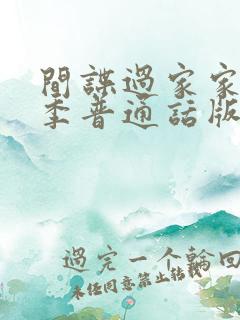 間諜過家家
季普通話版
過完一个輪回
未经同意禁止转载